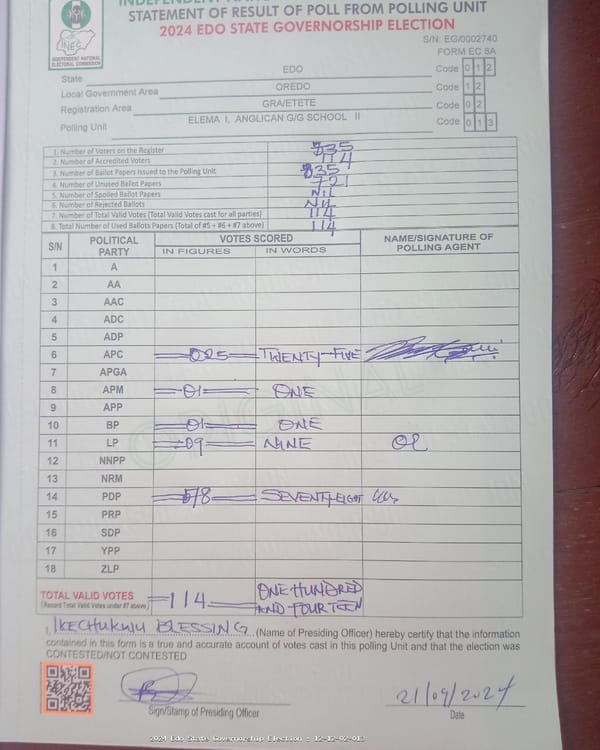 INDEPENDENT NA
STATEMENT OF RESULT OF POLL FROM POLLING UNIT
2024 EDO STATE GOVERNORSHIP ELECTION
S/N: EG/0002740
FORM EC 8A
INEC
INDEPENDENT NATIONAL
ELECTORAL COMMISSION
State EDO Code 0 1 2
Local Government Area OREDO Code 1 2
Registration Area GRA/ETETE Code 0 2
Polling Unit ELEMA I, ANGLICAN G/G SCHOOL II Code 0 1 3
1. Number of Voters on the Register 835
2. Number of Accredited Voters 114
3. Number of Ballot Papers Issued to the Polling Unit 835
4. Number of Unused Ballot Papers 721
5. Number of Spoiled Ballot Papers NIL
6. Number of Rejected Ballots NIL
7. Number of Total Valid Votes (Total Valid Votes cast for all parties) 114
8. Total Number of Used Ballots Papers (Total of #5 + #6 + #7 above) 114
S/N POLITICAL PARTY VOTES SCORED NAME/SIGNATURE OF POLLING AGENT
IN FIGURES IN WORDS
1 A
2 AA
3 AAC
4 ADC
5 ADP
6 APC 025 TWENTY-FIVE
7 APGA
8 APM 01 ONE
9 APP
10 BP 01 ONE
11 LP 09 NINE
12 NNPP
13 NRM
14 PDP 78 SEVENTY-EIGHT
15 PRP
16 SDP
17 YPP
18 ZLP
ORIGINAL
TOTAL VALID VOTES 114 ONE HUNDRED
(Record Total Valid Votes under #7 above) AND FOURTEEN
I, IKECHUKWU BLESSING (Name of Presiding Officer) hereby certify that the information
contained in this form is a true and accurate account of votes cast in this polling Unit and that the election was
CONTESTED/NOT CONTESTED
21/09/2024
Sign/Stamp of Presiding Officer Date
2024 Edo State Governorship Election : 12-12-02-013